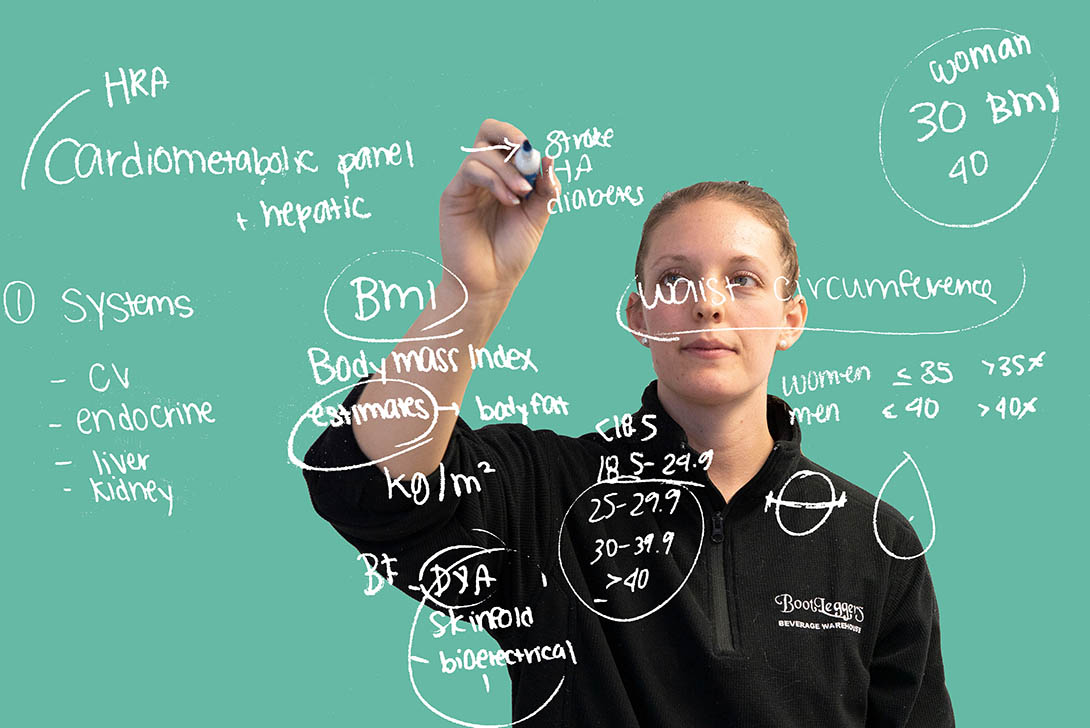 HRA
Cardiometabolic panel → stroke
HA
+ hepatic
diabetes
woman
30 BMI
40
① Systems
- CV
- endocrine
- liver
- kidney
BMI
Body mass Index
estimates → body fat
kg/m²
<18.5
18.5-24.9
25-29.9
30-39.9
>40
waist circumference
women ≤35 >35*
men ≤40 >40*
BF - DXA
skinfold
- bioelectrical
BootLeggers
BEVERAGE WAREHOUSE